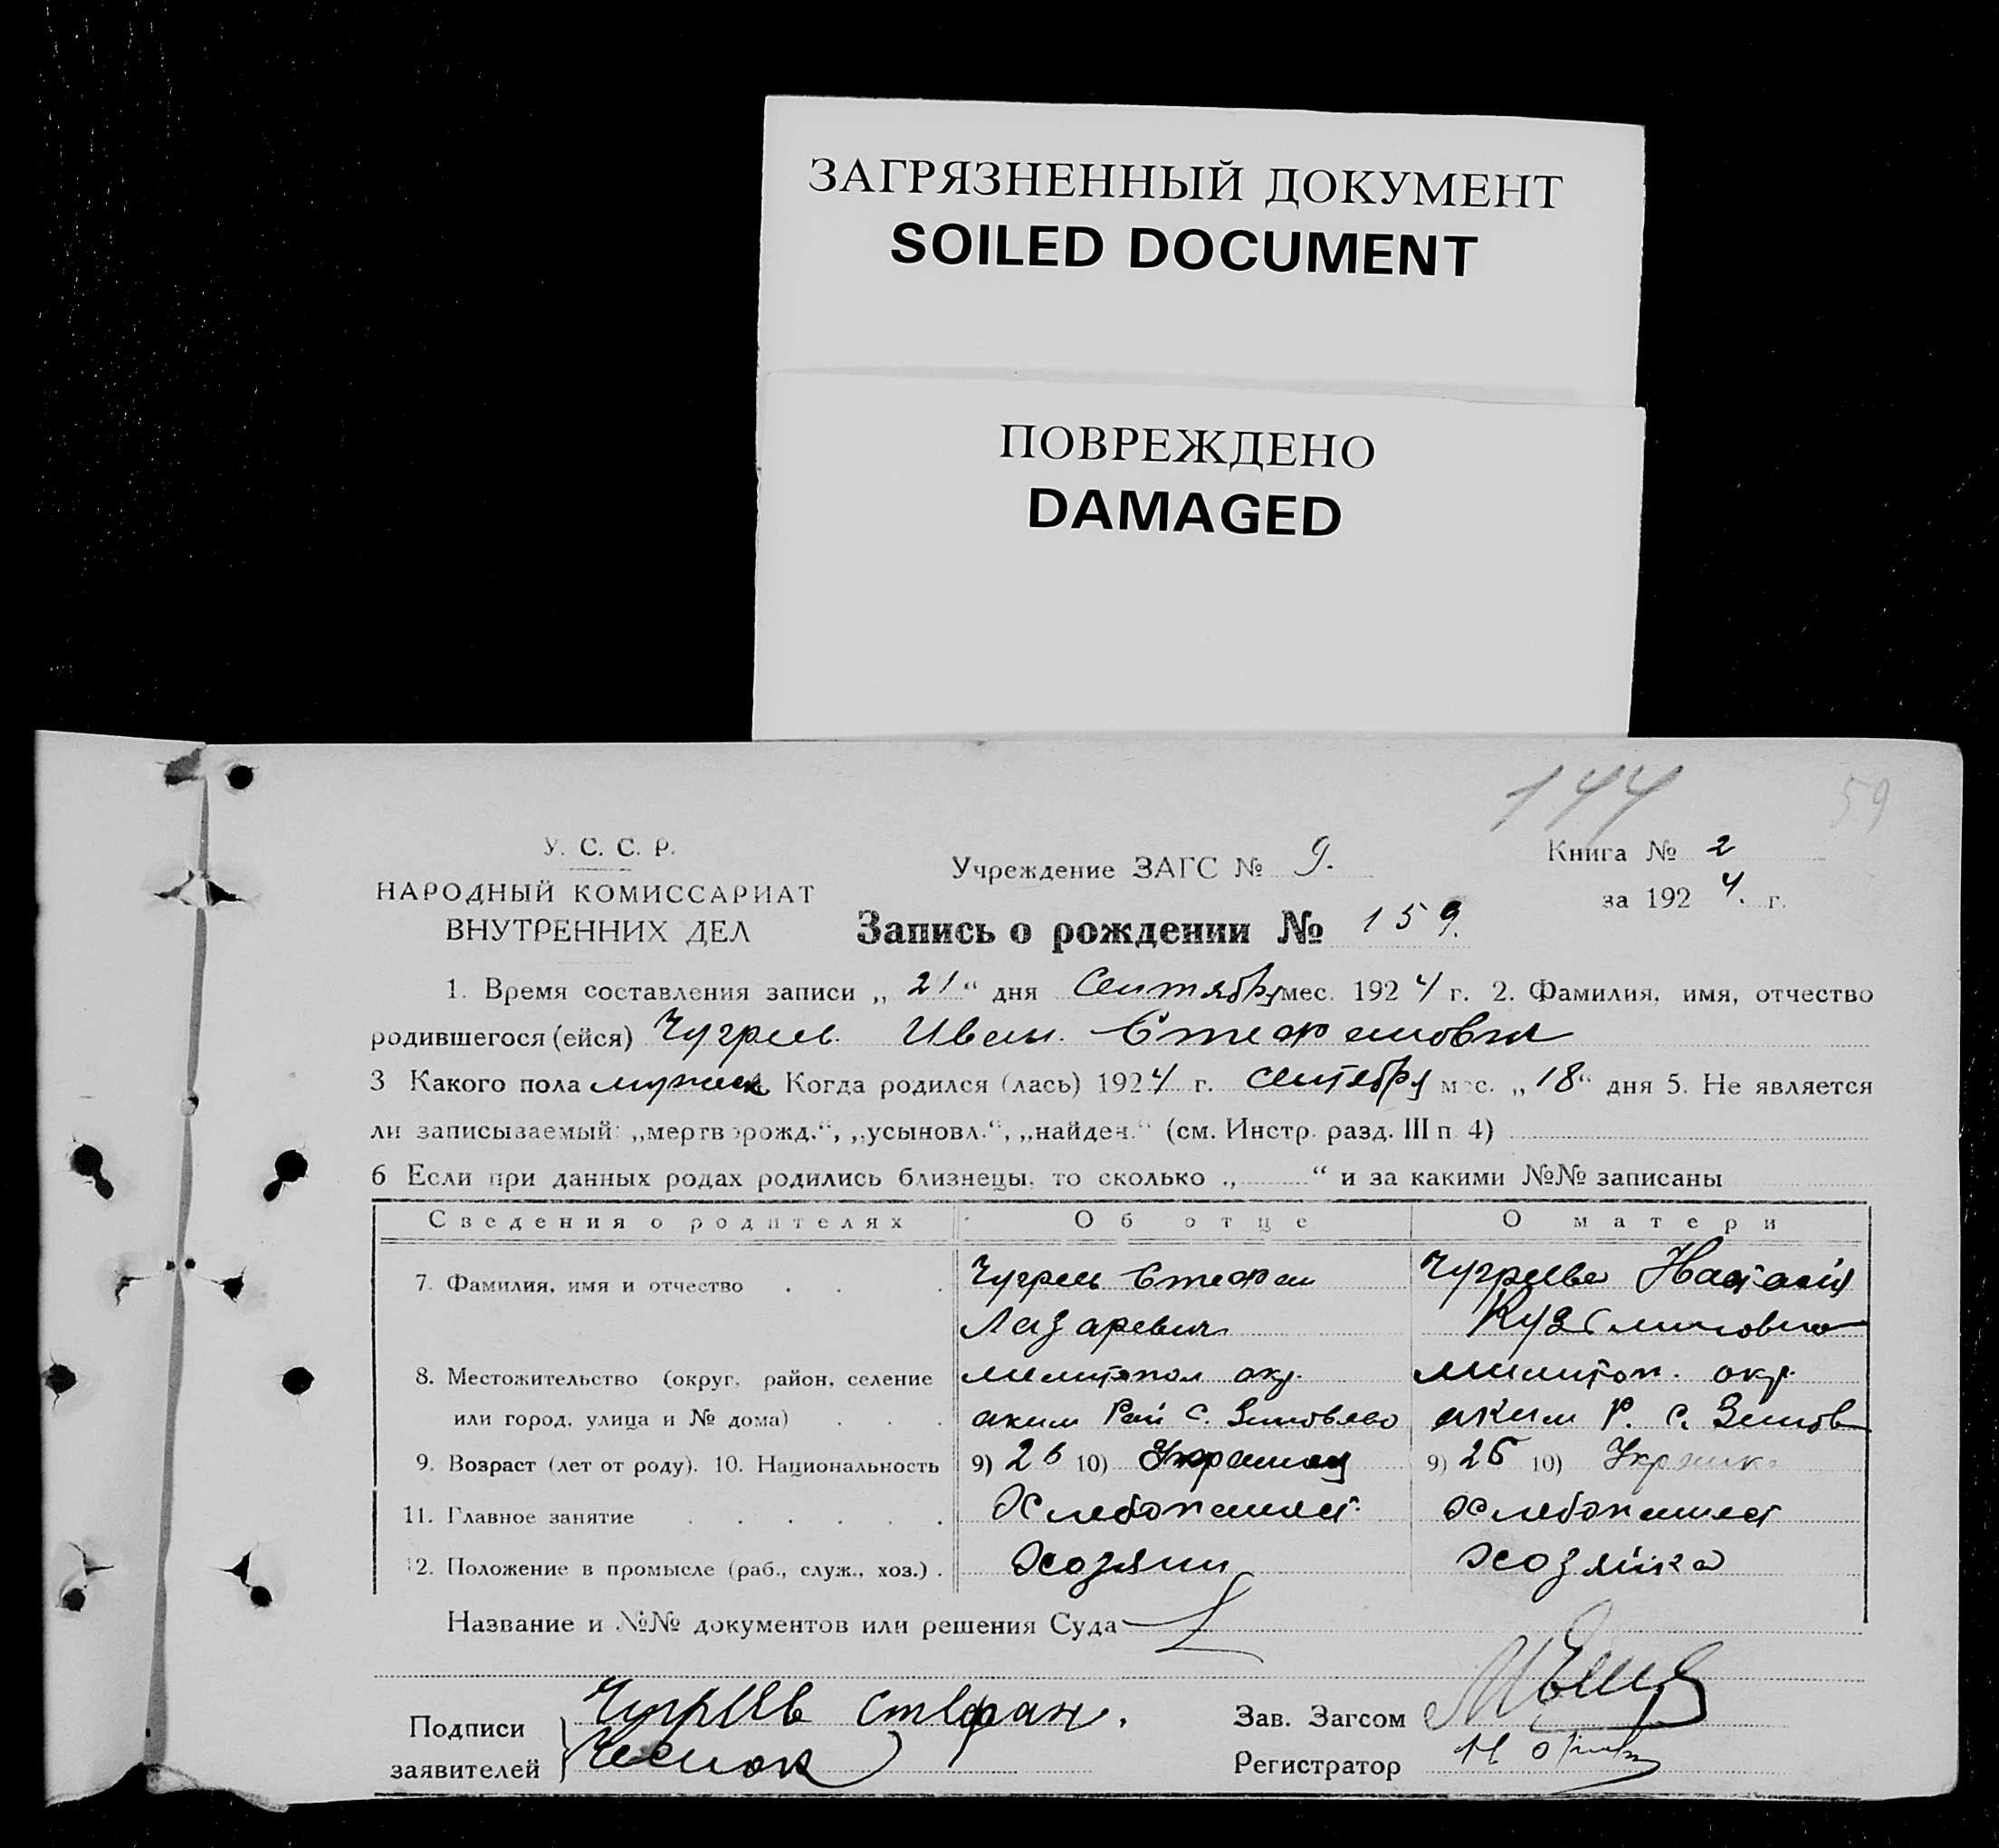 ЗАГРЯЗНЕННЫЙ ДОКУМЕНТ
SOILED DOCUMENT
ПОВРЕЖДЕНО
DAMAGED
144 59
У. С. С. Р.
НАРОДНЫЙ КОМИССАРИАТ
ВНУТРЕННИХ ДЕЛ
Учреждение ЗАГС № 9.
Книга № 2
за 1924. г.
Запись о рождении № 159.
1. Время составления записи „21“ дня Сентября мес. 1924 г. 2. Фамилия, имя, отчество
родившегося (ейся) Чугрѣев Иван Стефанович
3 Какого пола мужск Когда родился (лась) 1924 г. сентября мес. „18“ дня 5. Не является
ли записываемый: „мертворожд.“, „усыновл.“, „найден.“ (см. Инстр. разд. III п. 4)
6 Если при данных родах родились близнецы, то сколько „ “ и за какими №№ записаны
Сведения о родителях Об отце О матери
7. Фамилия, имя и отчество Чугреев Стефан Чугреева Наталия
Лазаревич Кузьминовна
8. Местожительство (округ, район, селение Мелитопол окр. Мелитоп. окр.
или город, улица и № дома) аким Рай с. Зиновьево аким Р. с. Зинов
9. Возраст (лет от роду). 10. Национальность 9) 26 10) Украинец 9) 26 10) Укр
11. Главное занятие Хлебопашест Хлебопашест
12. Положение в промысле (раб., служ., хоз.) Хозяин хозяйка
Название и №№ документов или решения Суда
Подписи Чугрѣев Стефан. Зав. Загсом
заявителей Чеснок Регистратор